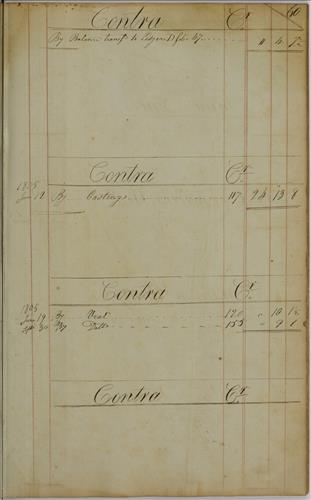 Contra Cr 60
By Balance transf.d to Ledger D folio 47 " 4 7½
Contra Cr
1805
June 12 By Castings 117 24 13 8
Contra Cr
1805
June 19 By Veal 120 " 10 18
By Ditto 153 " 9 1
Contra Cr